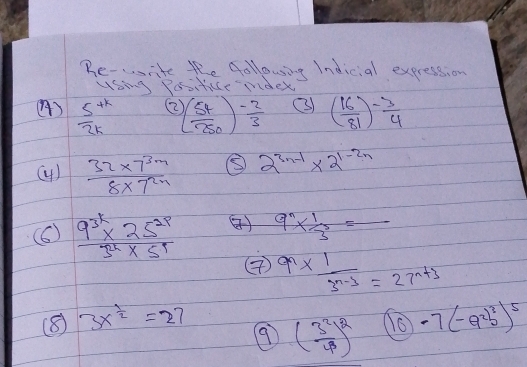 Re-write the following Indicial expression
using Positive index
(1) 5^{4k}/2k (2) (54/250)^{-2/3} (3) (16/81)^{-3/4}
(4) (32 × 7^{3m})/(8 × 7^{2n}) (5) 2^{3n-1} × 2^{1-2n}
(6) (9^{3k} × 25^{2p})/(3^{k} × 5^{p})
(7) 9^n × 1/3^{n-3} = 27^{n+3}
(8) 3x^{1/2} = 27
(9) (10)